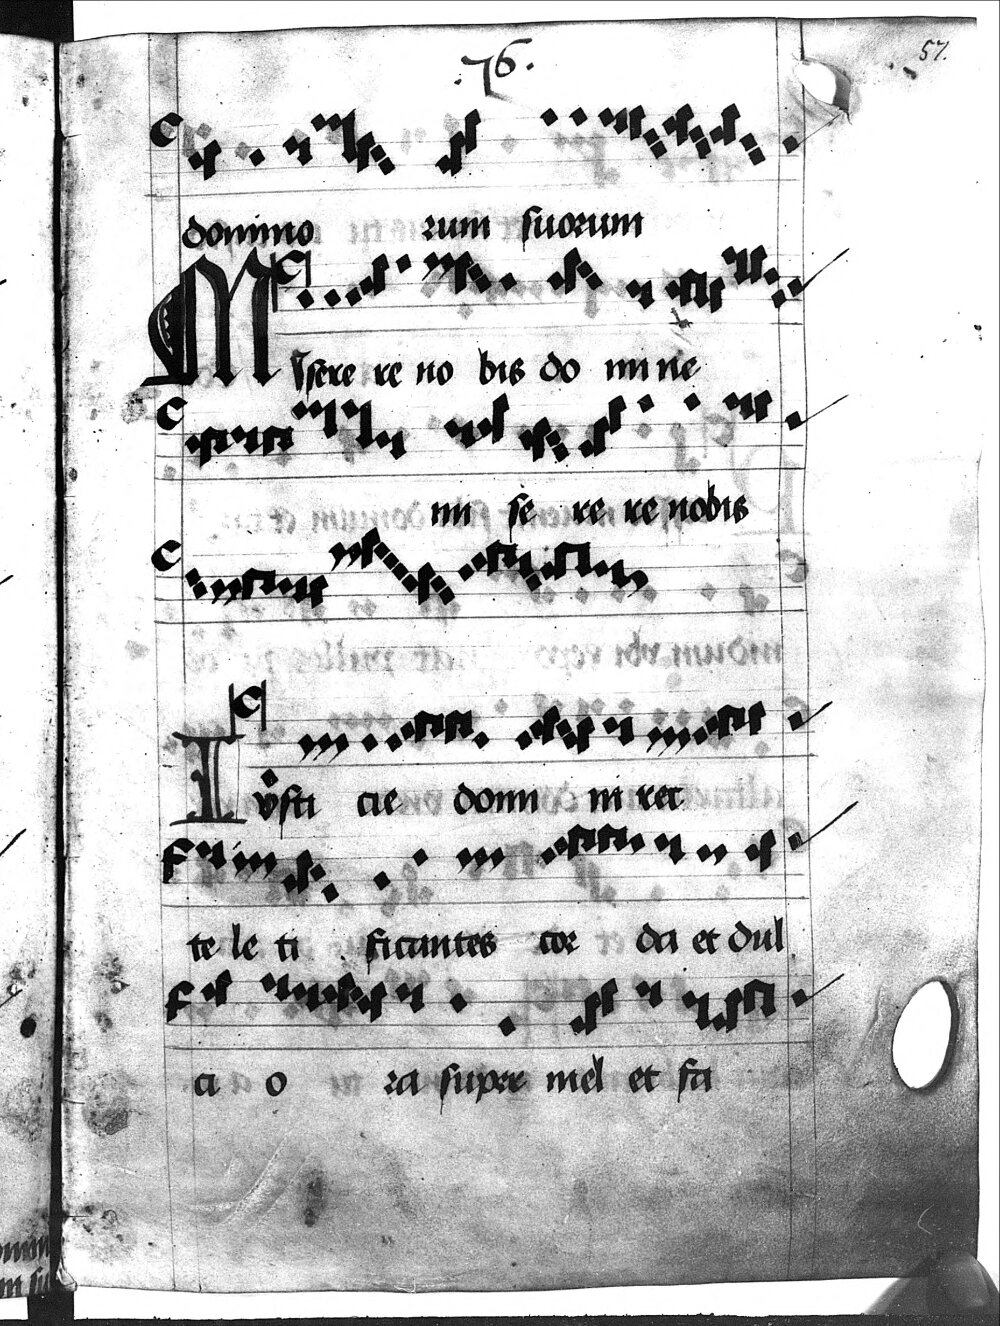 .76.
57.
domino rum suorum
Misere re no bis do mi ne
mi se re re nobis
Iusti cie domi ni rec
te le ti ficantes cor da et dul
ci o ra super mel et fa